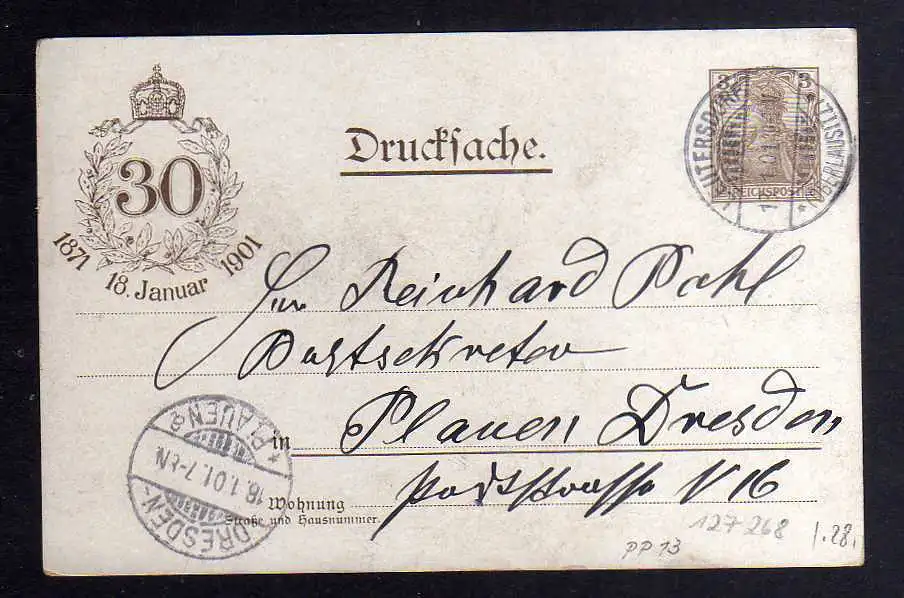 30
1871 18. Januar 1901
Drucksache.
3 3
REICHSPOST
LEUTERSDORF
(OBERLAUSITZ)
Herrn Reinhard Pohl
Postsekretär
in Plauen Dresden
Wohnung
Straße und Hausnummer.
N 16
DRESDEN-
* PLAUEN
18.1.01.7-8N.
127268
PP 13
1.28.